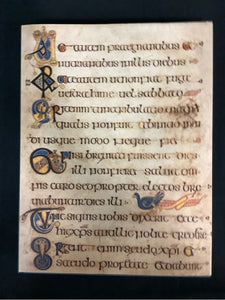 autem praegnantibus et
nutrientibus in illis diebus
autem ut non fiat fuga
uestra hieme uel sabbato
enim tunc tribulatio magna
qualis non fuit ab initio mun
di usque modo neque
nisi breuiati fuissent dies
illi non fieret salua om
nis caro sed propter electos bre
Tunc siquis uobis dixerit ecce
hic xps aut illic nolite credere
enim pseudo xpi et
pseudo profetae et dabunt